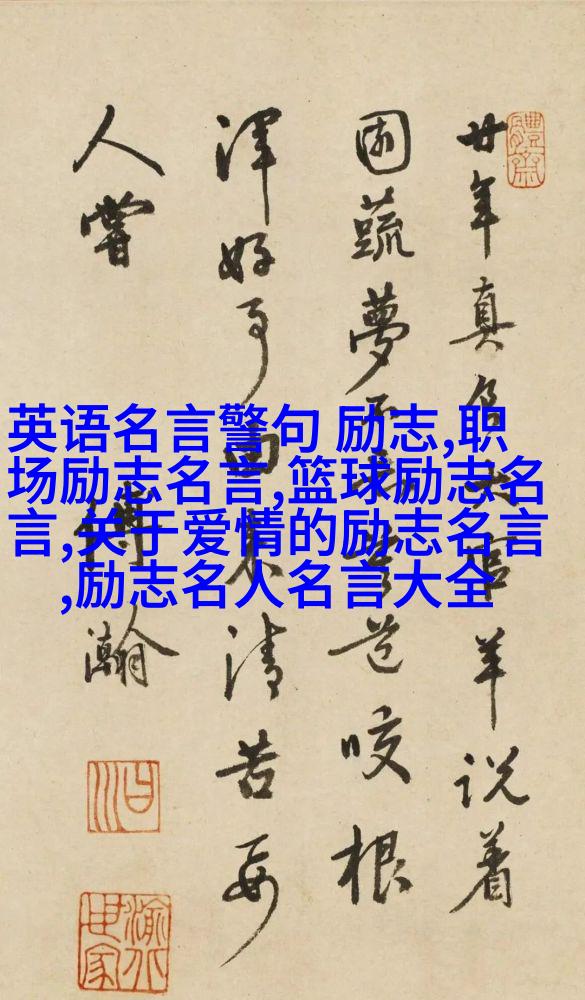 體齋
廿年真官羊说着
园蔬夢道咬根
渾好事由来清苦要
人嘗
傅瀚
英语名言警句 励志,职
场励志名言,篮球励志名
言,关于爱情的励志名言
,励志名人名言大全